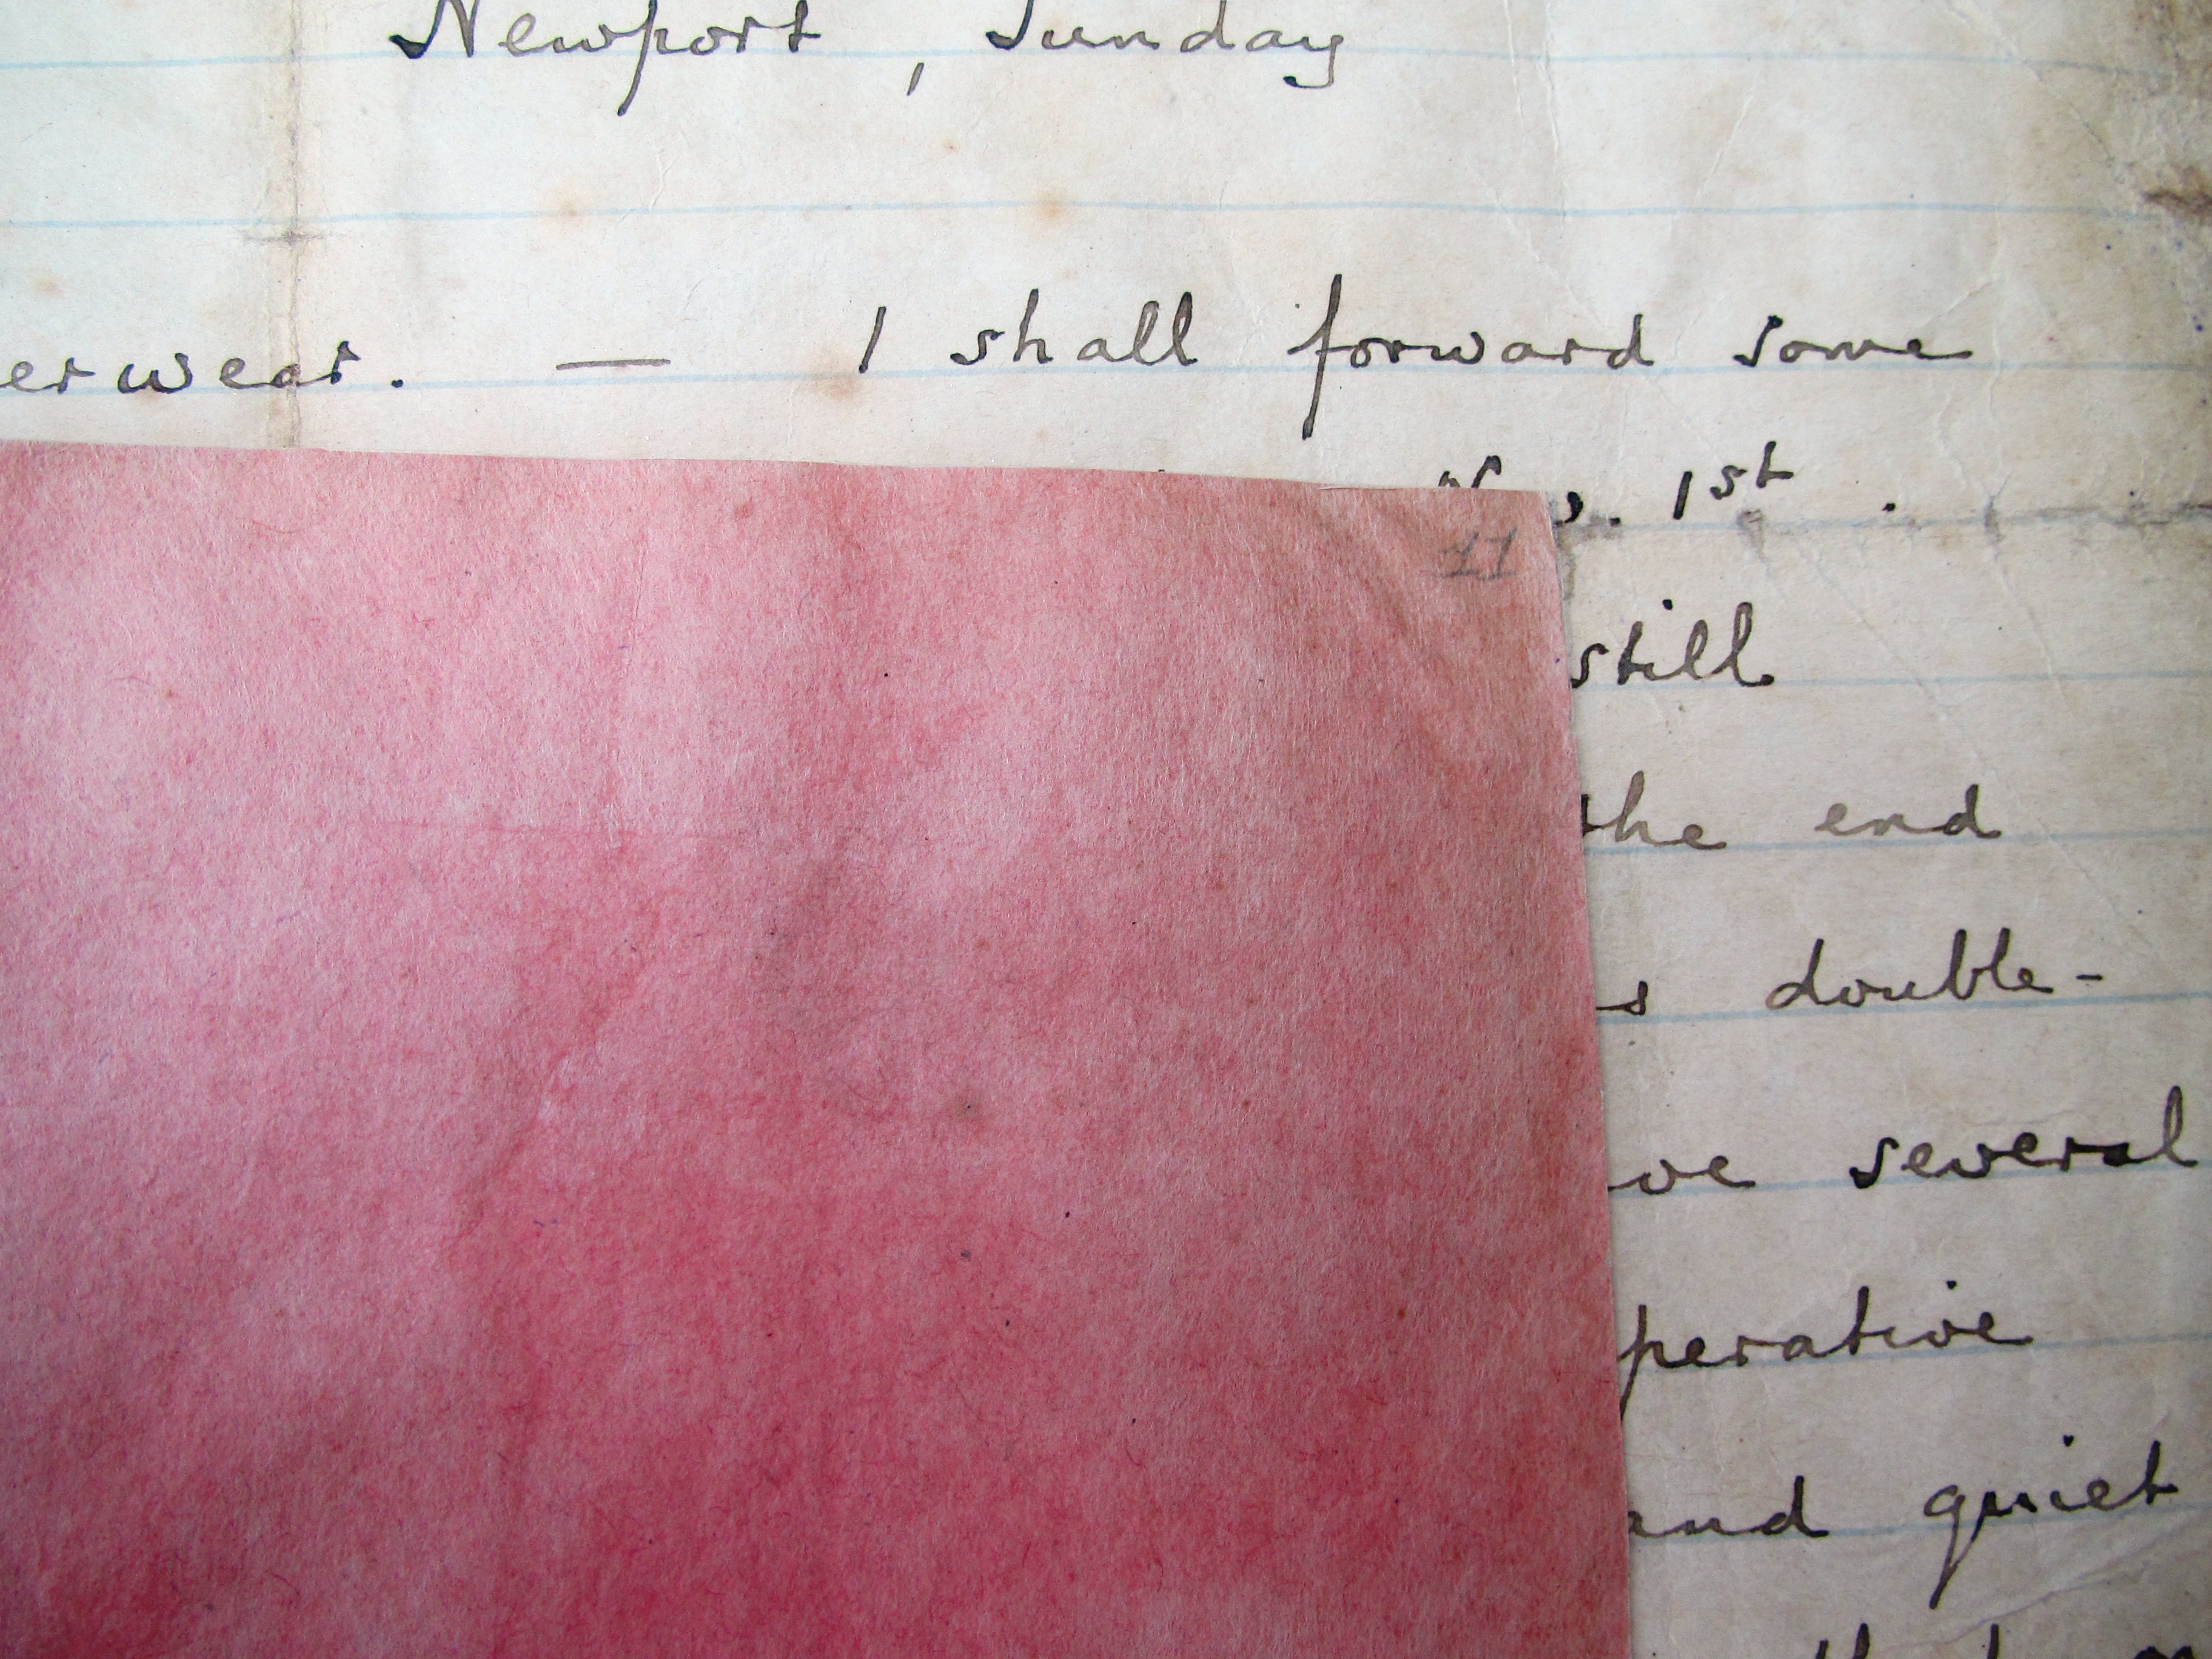 Newport, Sunday
erwear. — I shall forward some
1st.
11
still
the end
s double-
ve several
perative
and quiet